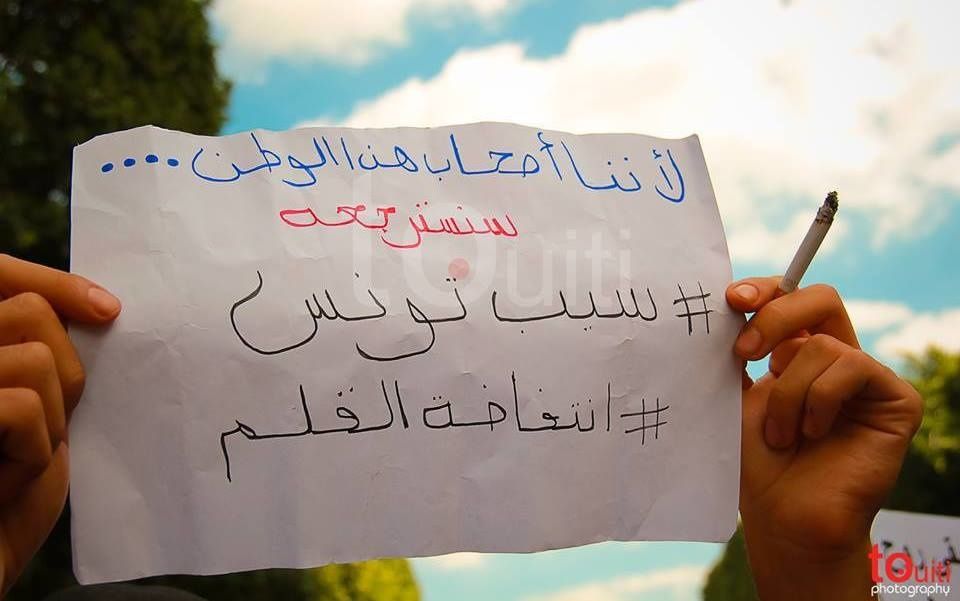 لأننا أصحاب هذا الوطن ....
سنسترجعه
# سيب تونس
# انتفاضة القلم
touiti
touiti
photography